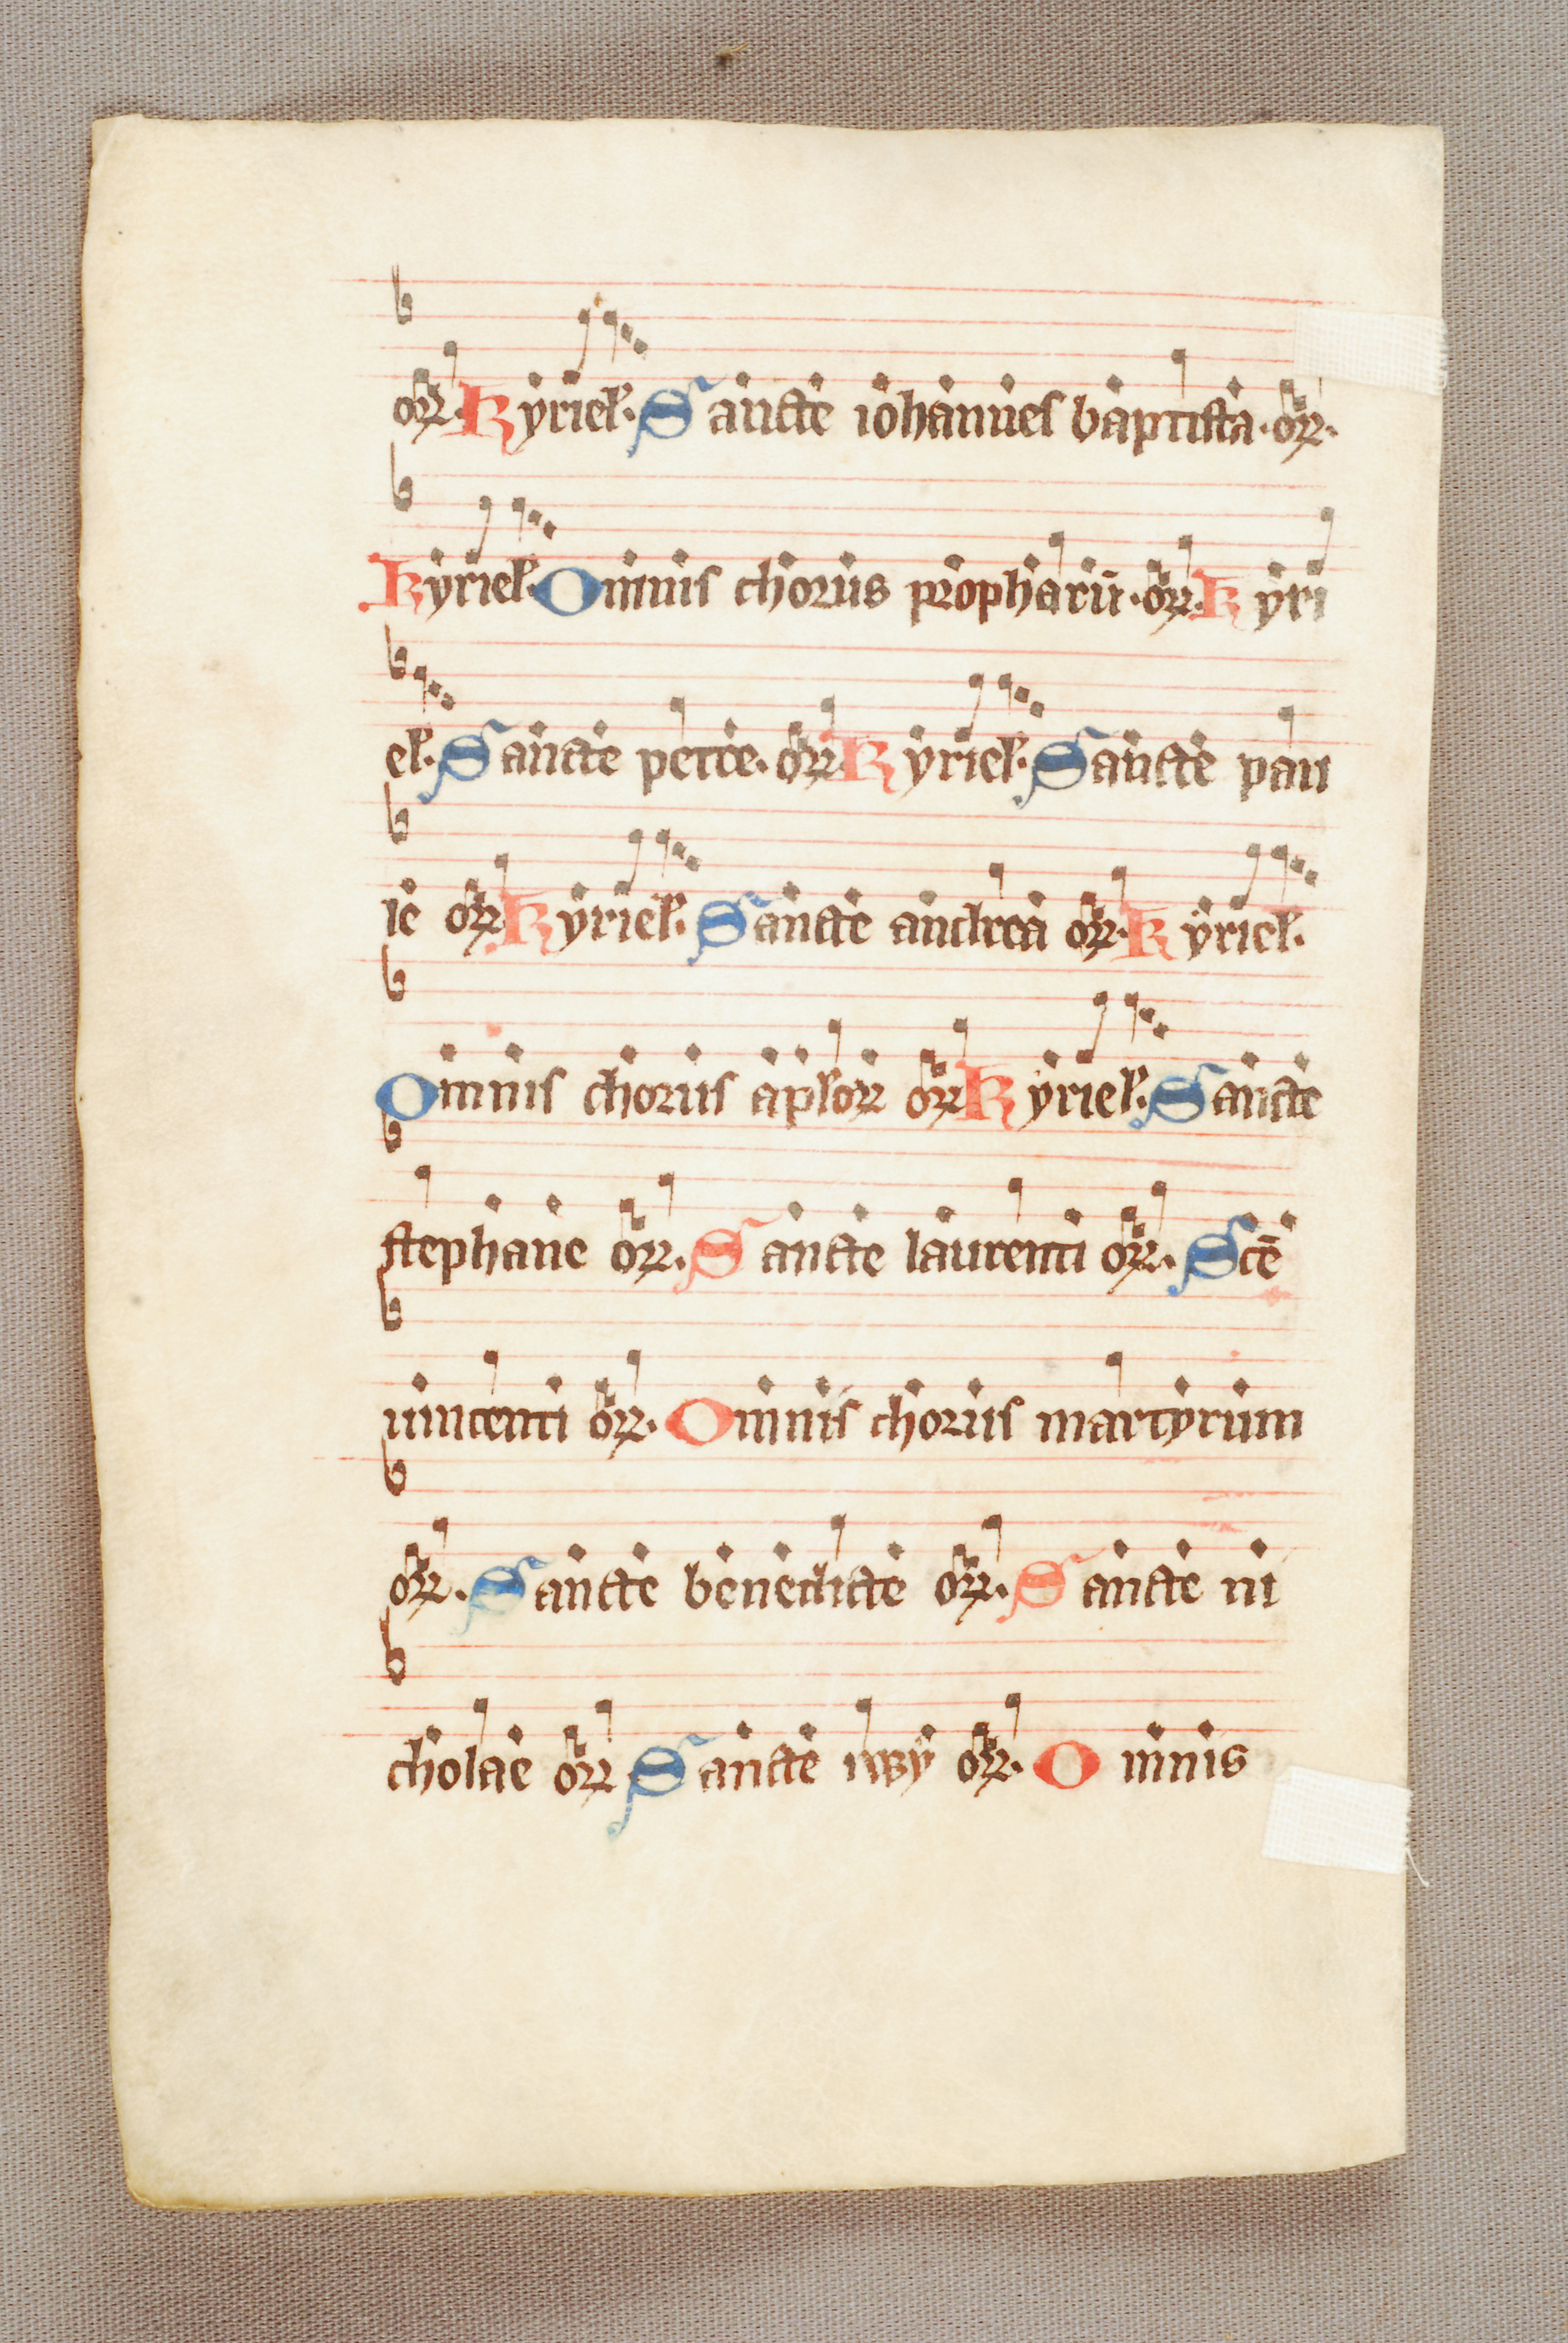 orꝝ. Kyriel. Sancte iohannes baptista. orꝝ.
Kyriel. Omnis chorus prophetarū. orꝝ. Kyri
el. Sancte petre. orꝝ. Kyriel. Sancte pau
le orꝝ. Kyriel. Sancte andrea orꝝ. Kyriel.
Omnis chorus aplorꝝ orꝝ. Kyriel. Sancte
stephane orꝝ. Sancte laurenti orꝝ. Scē
uincenti orꝝ. Omnis chorus martyrum
orꝝ. Sancte benedicte orꝝ. Sancte ni
cholae orꝝ Sancte orꝝ. Omnis